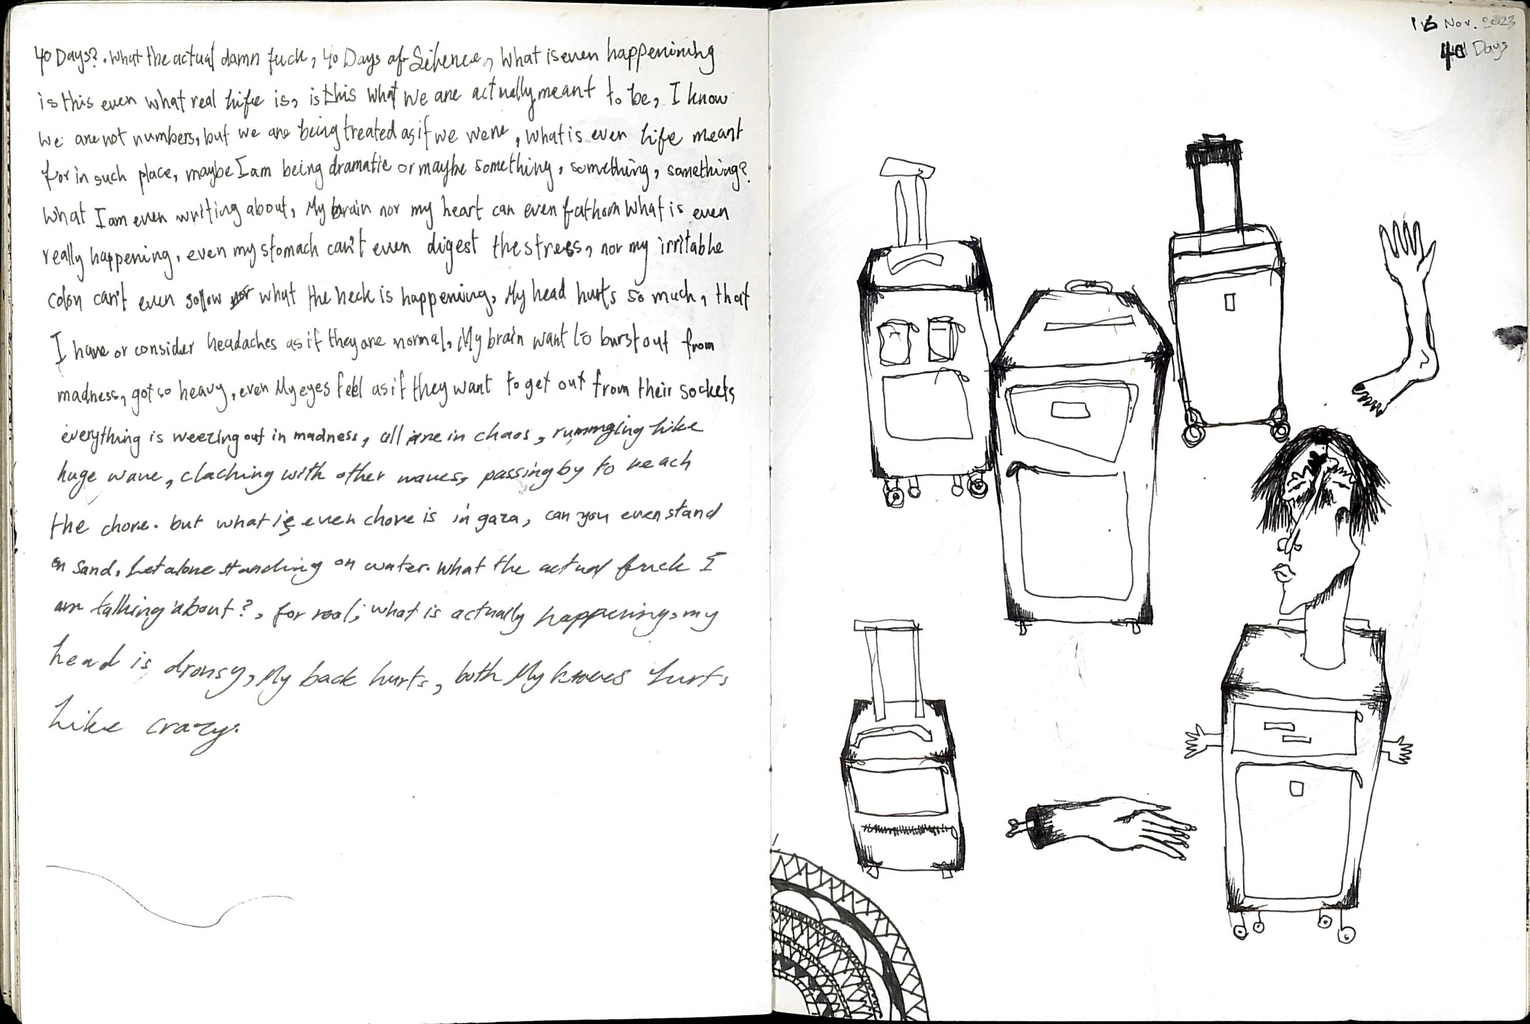 40 Days?. What the actual damn fuck, 40 Days of Silence, What is even happenining
is this even what real life is, is this what we are actually meant to be, I know
we are not numbers, but we are being treated as if we were, what is even life meant
for in such place, maybe I am being dramatic or maybe something, something, something?
What I am even writing about, My brain nor my heart can even fathom what is even
really happening, even my stomach can't even digest the stress, nor my irritable
colon can't even sollow what the heck is happening, My head hurts so much, that
I have or consider headaches as if they are normal, My brain want to burst out from
madness, got so heavy, even My eyes feel as if they want to get out from their sockets
everything is weezing out in madness, all are in chaos, like
huge wave, claching with other waves, passing by to reach
the chore. but what is even chore is in gaza, can you even stand
on sand, Let alone standing on water. what the actual fuck I
am talking about?, for real, what is actually happening, my
head is drowsy, My back hurts, both My knees hurts
like crazy.
16 Nov. 2023
40 Days